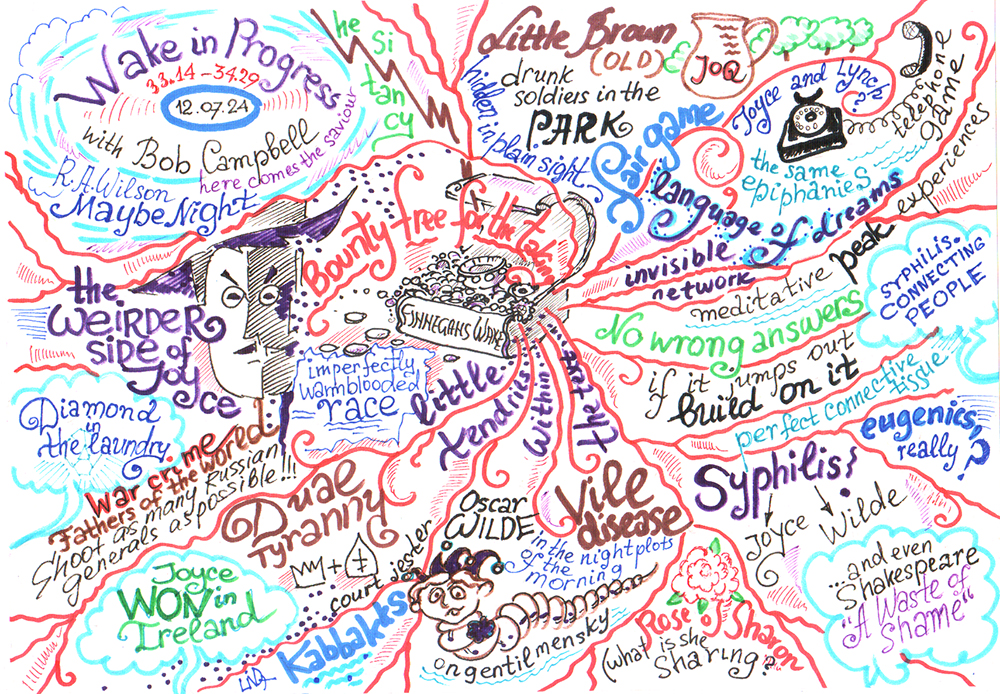 Wake in Progress
33.14 - 34.29
12.07.24
with Bob Campbell
here comes the saviour
R.A. Wilson
Maybe Night
he
Si
tan
cy
Little Brown
(OLD)
JOQ
hidden in plain sight
drunk
soldiers in the
PARK
Fair game
Joyce and Lynch?
telephone
game
the same
epiphanies
language of dreams
invisible
network
peak
experiences
meditative
SYPHILIS.
CONNECTING
PEOPLE
No wrong answers
if it jumps out
build on it
perfect connective
tissue
eugenics,
really?
Bounty free for the taking
FINNEGANS WAKE
the
WEIRDER
side of
Joyce
imperfectly
warmblooded
race
little
tendrils
within
the text
Diamond
in
the laundry
War crime
Fathers of the World
Shoot as many Russian
generals as possible!!!
Dual
Tyranny
court jester
Joyce
WON in
Ireland
Kabbakks
Oscar
WILDE
Vile
disease
in the night plots
of the
morning
on gentilmensky
Rose of Sharon
(what is she
sharing?
Syphilis
Joyce
Wilde
...and even
Shakespeare
"A Waste of
Shame"